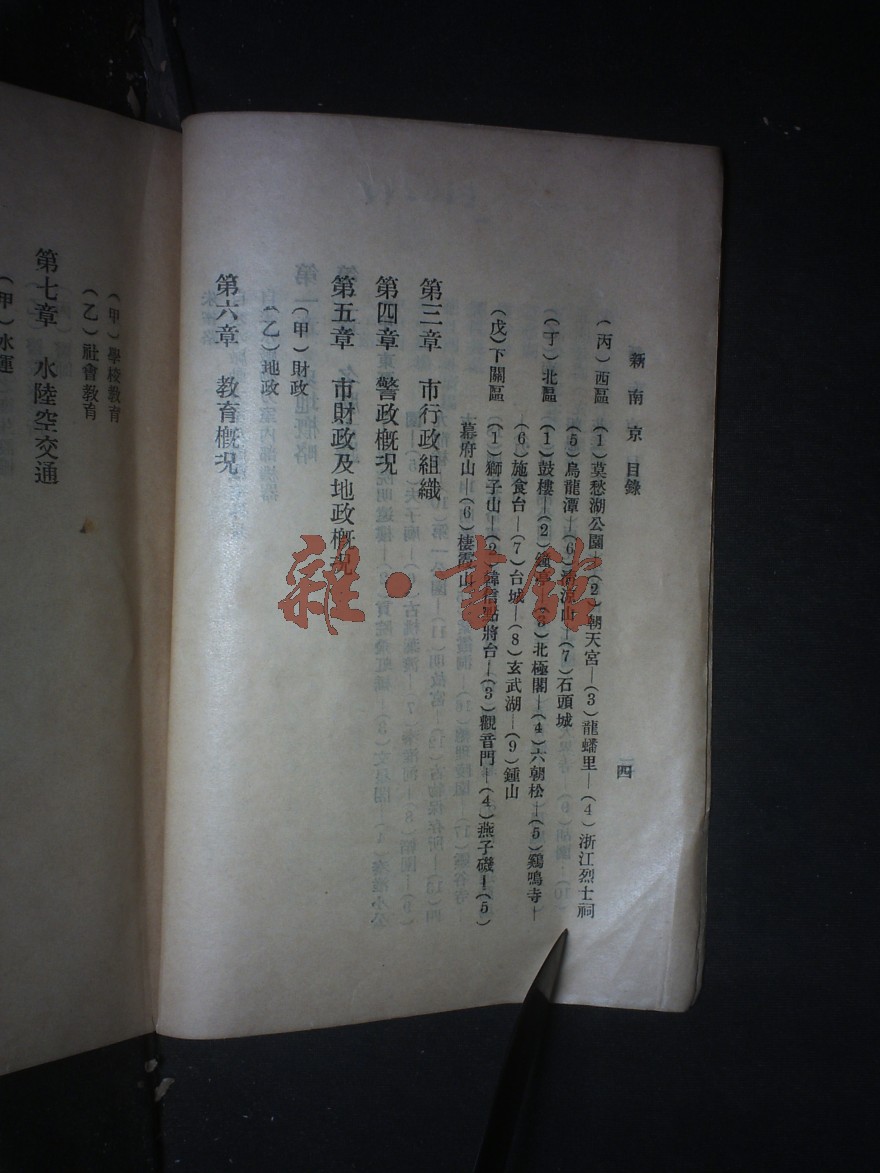 新南京 目錄
四
(丙)西區 (1)莫愁湖公園—(2)朝天宮—(3)龍蟠里—(4)浙江烈士祠
(5)烏龍潭—(6)清涼山—(7)石頭城
(丁)北區 (1)鼓樓—(2)鐘亭—(3)北極閣—(4)六朝松—(5)鷄鳴寺—
(6)施食台—(7)台城—(8)玄武湖—(9)鍾山
(戊)下關區 (1)獅子山—(2)韓信點將台—(3)觀音門—(4)燕子磯—(5)
幕府山—(6)棲霞山
第三章 市行政組織
第四章 警政概况
第五章 市財政及地政概况
(甲)財政
(乙)地政
第六章 教育概况
(甲)學校教育
(乙)社會教育
第七章 水陸空交通
(甲)水運
雜·書館